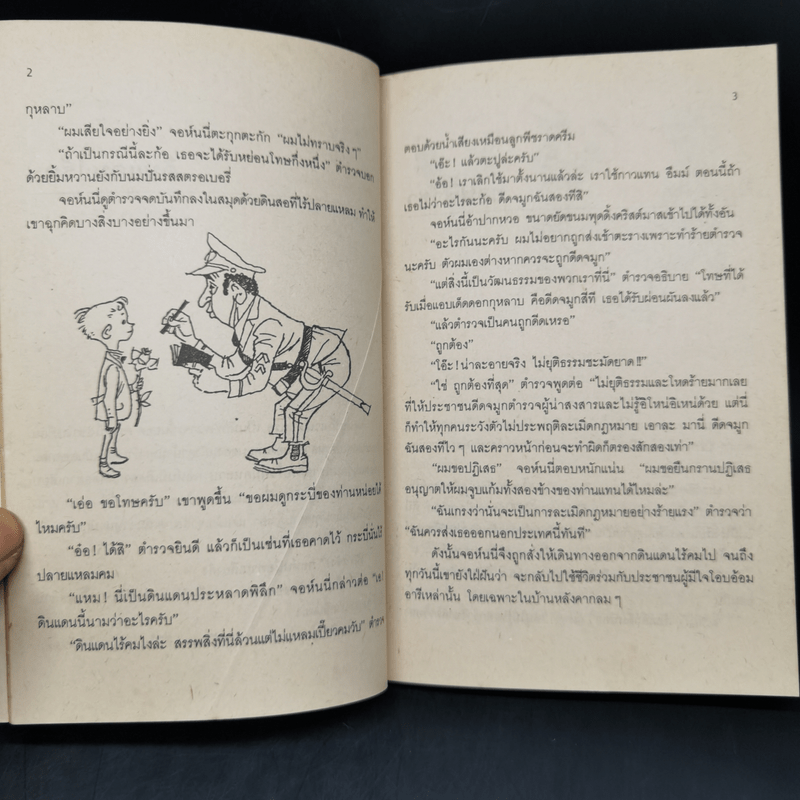 2
กุหลาบ"
"ผมเสียใจอย่างยิ่ง" จอห์นนี่ตะกุกตะกัก "ผมไม่ทราบจริง ๆ"
"ถ้าเป็นกรณีนี้ละก้อ เธอจะได้รับหย่อนโทษกึ่งหนึ่ง" ตำรวจบอก
ด้วยยิ้มหวานยังกับนมปั่นรสสตรอเบอรี่
จอห์นนี่ดูตำรวจจดบันทึกลงในสมุดด้วยดินสอที่ไร้ปลายแหลม ทำให้
เขาฉุกคิดบางสิ่งบางอย่างขึ้นมา
"เอ่อ ขอโทษครับ" เขาพูดขึ้น "ขอผมดูกระบี่ของท่านหน่อยได้
ไหมครับ"
"อ๋อ! ได้สิ" ตำรวจยินดี แล้วก็เป็นเช่นที่เธอคาดไว้ กระบี่นั้นไร้
ปลายแหลมคม
"แหม! นี่เป็นดินแดนประหลาดพิลึก" จอห์นนี่กล่าวต่อ "เอ!
ดินแดนนี้นามว่าอะไรครับ"
"ดินแดนไร้คมไงล่ะ สรรพสิ่งที่นี่ล้วนแต่ไม่แหลมเปี๊ยวคมวับ" ตำรวจ
3
ตอบด้วยน้ำเสียงเหมือนลูกพีชราดครีม
"เอ๊ะ! แล้วตะปูล่ะครับ"
"อ๋อ! เราเลิกใช้มาตั้งนานแล้วล่ะ เราใช้กาวแทน อืมม์ ตอนนี้ถ้า
เธอไม่ว่าอะไรละก้อ ดีดจมูกฉันสองทีสิ"
จอห์นนี่อ้าปากหวอ ขนาดยัดขนมพุดดิ้งคริสต์มาสเข้าไปได้ทั้งอัน
"อะไรกันนะครับ ผมไม่อยากถูกส่งเข้าตะรางเพราะทำร้ายตำรวจ
นะครับ ตัวผมเองต่างหากควรจะถูกดีดจมูก"
"แต่สิ่งนี้เป็นวัฒนธรรมของพวกเราที่นี่" ตำรวจอธิบาย "โทษที่ได้
รับเมื่อแอบเด็ดดอกกุหลาบ คือดีดจมูกสี่ที เธอได้รับผ่อนผันลงแล้ว"
"แล้วตำรวจเป็นคนถูกดีดเหรอ"
"ถูกต้อง"
"โอ๊ะ! น่าละอายจริง ไม่ยุติธรรมชะมัดยาด!!"
"ใช่ ถูกต้องที่สุด" ตำรวจพูดต่อ "ไม่ยุติธรรมและโหดร้ายมากเลย
ที่ให้ประชาชนดีดจมูกตำรวจผู้น่าสงสารและไม่รู้อิโหน่อิเหน่ด้วย แต่นี่
ก็ทำให้ทุกคนระวังตัวไม่ประพฤติละเมิดกฎหมาย เอาละ มานี่ ดีดจมูก
ฉันสองทีไว ๆ และคราวหน้าก่อนจะทำผิดก็ตรองสักสองเท่า"
"ผมขอปฏิเสธ" จอห์นนี่ตอบหนักแน่น "ผมขอยืนกรานปฏิเสธ
อนุญาตให้ผมจูบแก้มทั้งสองข้างของท่านแทนได้ไหมล่ะ"
"ฉันเกรงว่านั่นจะเป็นการละเมิดกฎหมายอย่างร้ายแรง" ตำรวจว่า
"ฉันควรส่งเธอออกนอกประเทศนี้ทันที"
ดังนั้นจอห์นนี่จึงถูกสั่งให้เดินทางออกจากดินแดนไร้คมไป จนถึง
ทุกวันนี้เขายังใฝ่ฝันว่า จะกลับไปใช้ชีวิตร่วมกับประชาชนผู้มีใจโอบอ้อม
อารีเหล่านั้น โดยเฉพาะในบ้านหลังคากลม ๆ